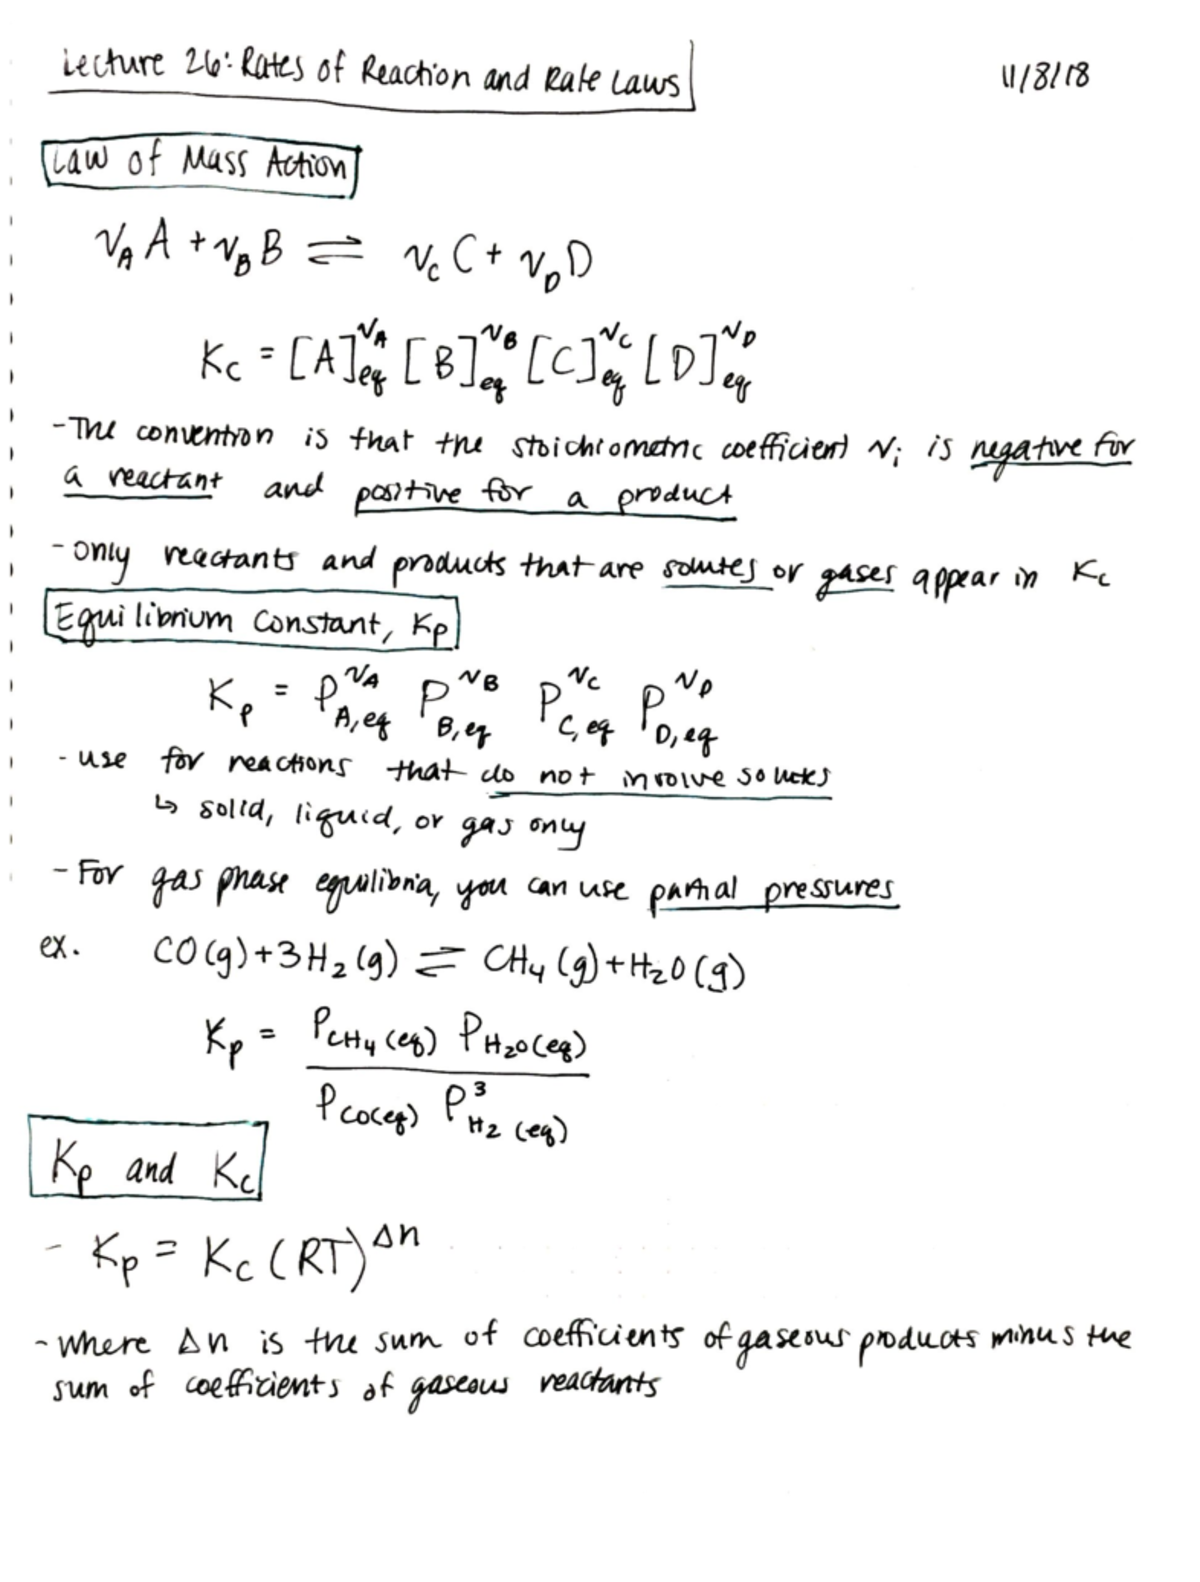 Lecture 26: Rates of Reaction and Rate Laws
11/8/18
Law of Mass Action
ν_A A + ν_B B ⇌ ν_C C + ν_D D
K_C = [A]_eq^ν_A [B]_eq^ν_B [C]_eq^ν_C [D]_eq^ν_D
-The convention is that the stoichiometric coefficient ν_i is negative for
a reactant and positive for a product
-only reactants and products that are solutes or gases appear in K_C
Equilibrium Constant, K_p
K_p = P_A,eq^ν_A P_B,eq^ν_B P_C,eq^ν_C P_D,eq^ν_D
- use for reactions that do not involve solutes
↳ solid, liquid, or gas only
- For gas phase equilibria, you can use partial pressures
ex. CO(g) + 3H₂(g) ⇌ CH₄(g) + H₂O(g)
K_p = P_CH₄(eq) P_H₂O(eq)
P_CO(eq) P³_H₂(eq)
K_p and K_C
- K_p = K_C (RT)^Δn
- where Δn is the sum of coefficients of gaseous products minus the
sum of coefficients of gaseous reactants